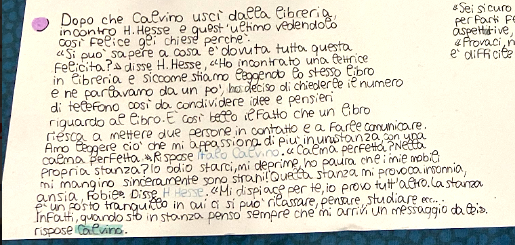 Dopo che Calvino uscì dalla libreria,
incontrò H. Hesse e quest'ultimo vedendolo
così felice gli chiese perchè:
«Si può sapere a cosa è dovuta tutta questa
felicità?» disse H. Hesse, «Ho incontrato una lettrice
in libreria e siccome stiamo leggendo lo stesso libro
e ne parlavamo da un po', ho deciso di chiederle il numero
di telefono così da condividere idee e pensieri
riguardo al libro. È così bello il fatto che un libro
riesca a mettere due persone in contatto e a farle comunicare.
Amo leggere ciò che mi appassiona di più in una stanza con una
calma perfetta.» Rispose Italo Calvino. «Calma perfetta? Nella
propria stanza? Io odio starci, mi deprime, ho paura che i miei mobili
mi mangino sinceramente sono strani! Questa stanza mi provoca insonnia,
ansia, fobie». Disse H Hesse. «Mi dispiace per te, io provo tutt'altro. La stanza
è un posto tranquillo in cui ci si può rilassare, pensare, studiare ecc...
Infatti, quando sto in stanza penso sempre che mi arrivi un messaggio da
rispose Calvino.
«Sei sicuro
per farti f
aspettative,
«Provaci, n
è diffici